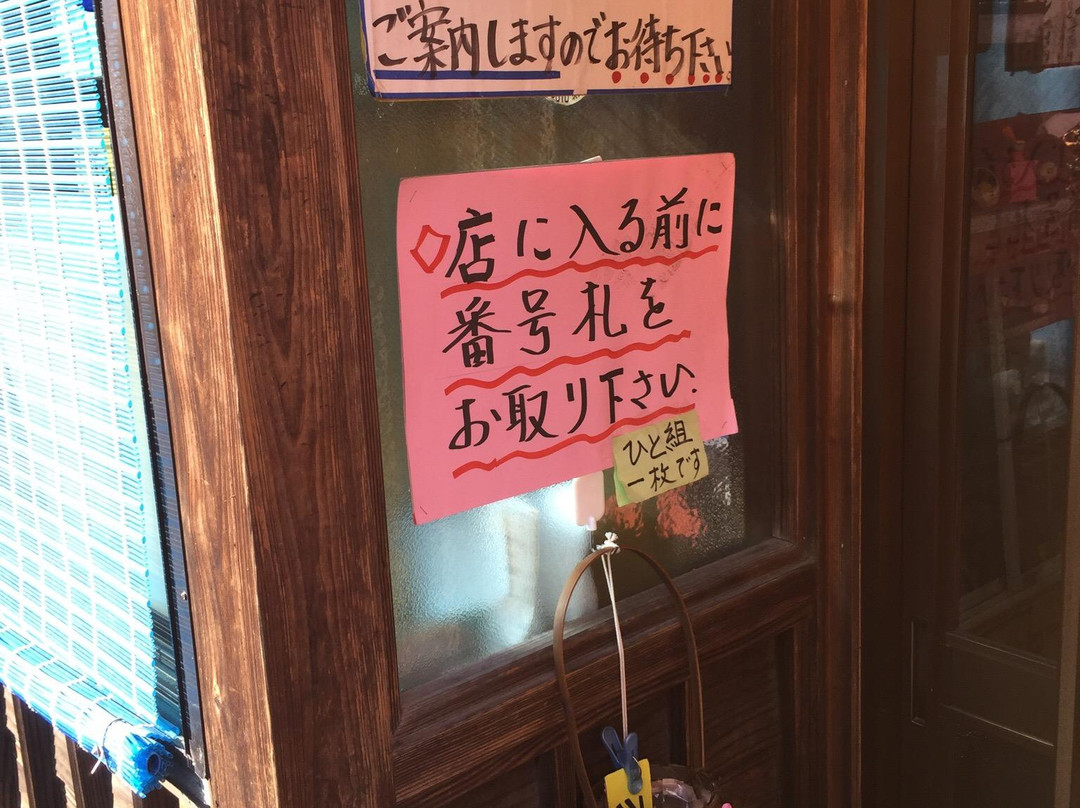 ご案内しますのでお待ち下さい
◇店に入る前に
番号札を
お取り下さい.
ひと組
一枚です